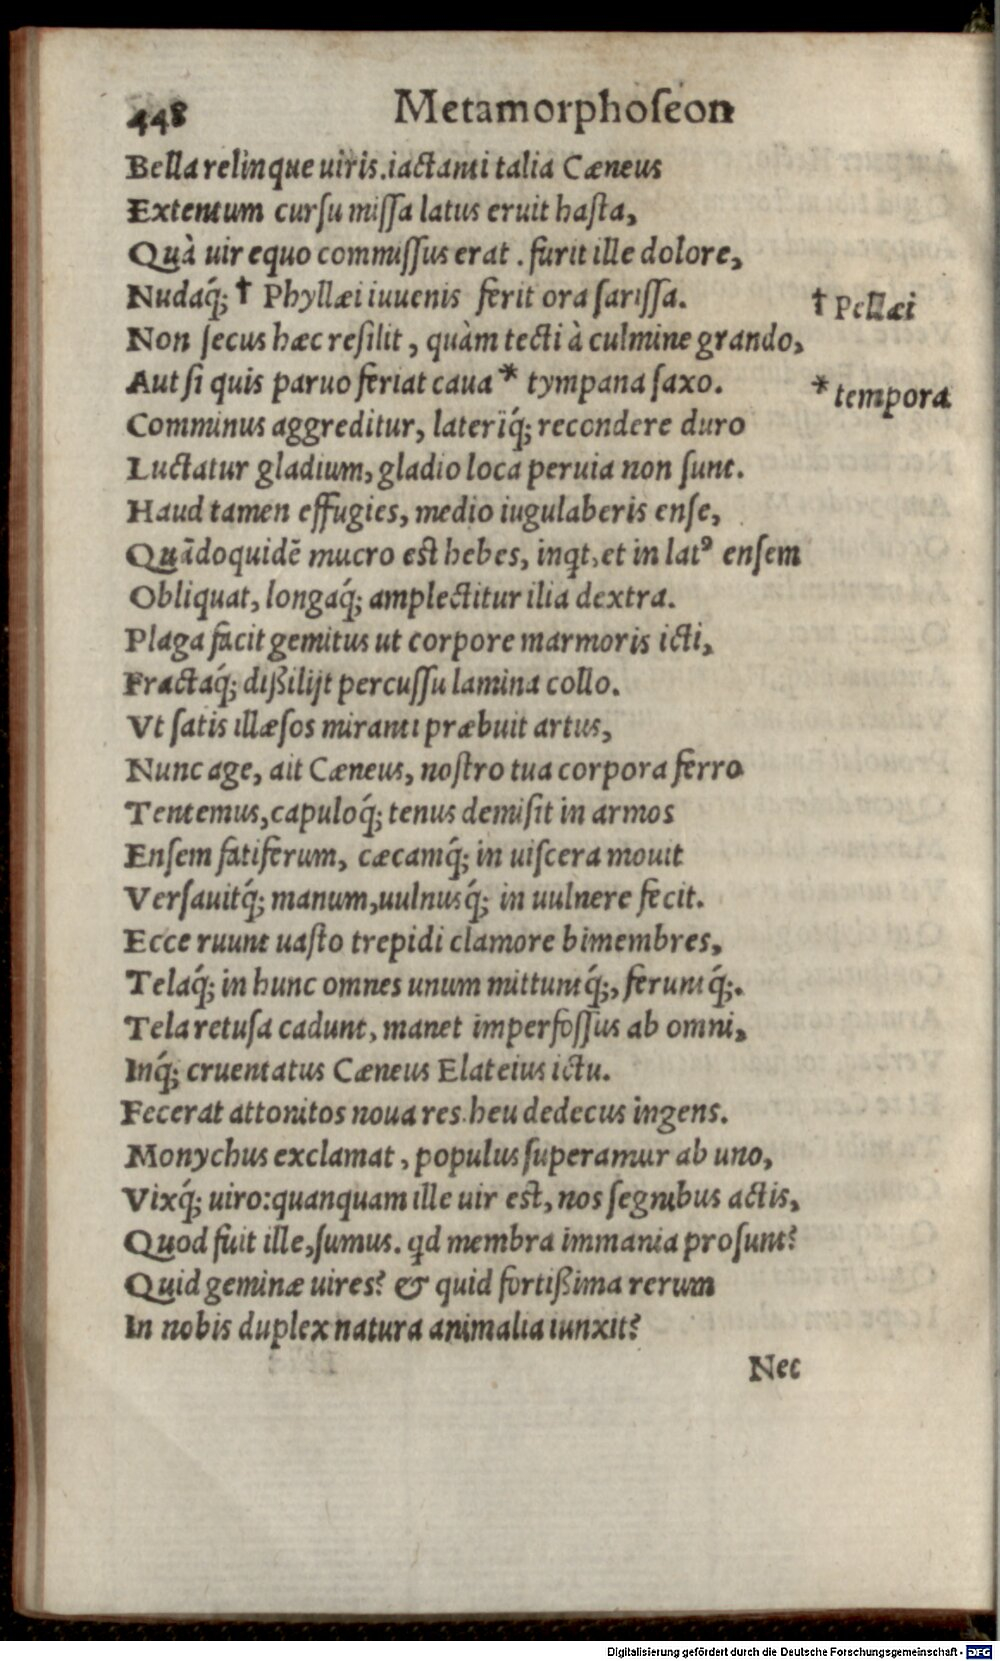 448 Metamorphoſeon
Bella relinque uiris. iactanti talia Cæneus
Extentum curſu miſſa latus eruit haſta,
Quà uir equo commiſſus erat. furit ille dolore,
Nudaq́; † Phyllæi iuuenis ferit ora ſariſſa. † Pellæi
Non ſecus hæc reſilit, quàm tecti à culmine grando,
Aut ſi quis paruo feriat caua * tympana ſaxo. * tempora
Comminus aggreditur, lateriq́; recondere duro
Luctatur gladium, gladio loca peruia non ſunt.
Haud tamen effugies, medio iugulaberis enſe,
Quãdoquidẽ mucro eſt hebes, inqt, et in latꝰ enſem
Obliquat, longaq́; amplectitur ilia dextra.
Plaga facit gemitus ut corpore marmoris icti,
Fractaq́; dißilijt percuſſu lamina collo.
Vt ſatis illæſos miranti præbuit artus,
Nunc age, ait Cæneus, noſtro tua corpora ferro
Tentemus, capuloq́; tenus demiſit in armos
Enſem fatiferum, cæcamq́; in uiſcera mouit
Verſauitq́; manum, uulnusq́; in uulnere fecit.
Ecce ruunt uaſto trepidi clamore bimembres,
Telaq́; in hunc omnes unum mittuntq́;, feruntq́;.
Tela retuſa cadunt, manet imperfoſſus ab omni,
Inq́; cruentatus Cæneus Elateius ictu.
Fecerat attonitos noua res. heu dedecus ingens.
Monychus exclamat, populus ſuperamur ab uno,
Vixq́; uiro: quanquam ille uir eſt, nos ſegnibus actis,
Quod fuit ille, ſumus. qd membra immania proſunt?
Quid geminæ uires? & quid fortißima rerum
In nobis duplex natura animalia iunxit?
Nec
Digitalisierung gefördert durch die Deutsche Forschungsgemeinschaft - DFG